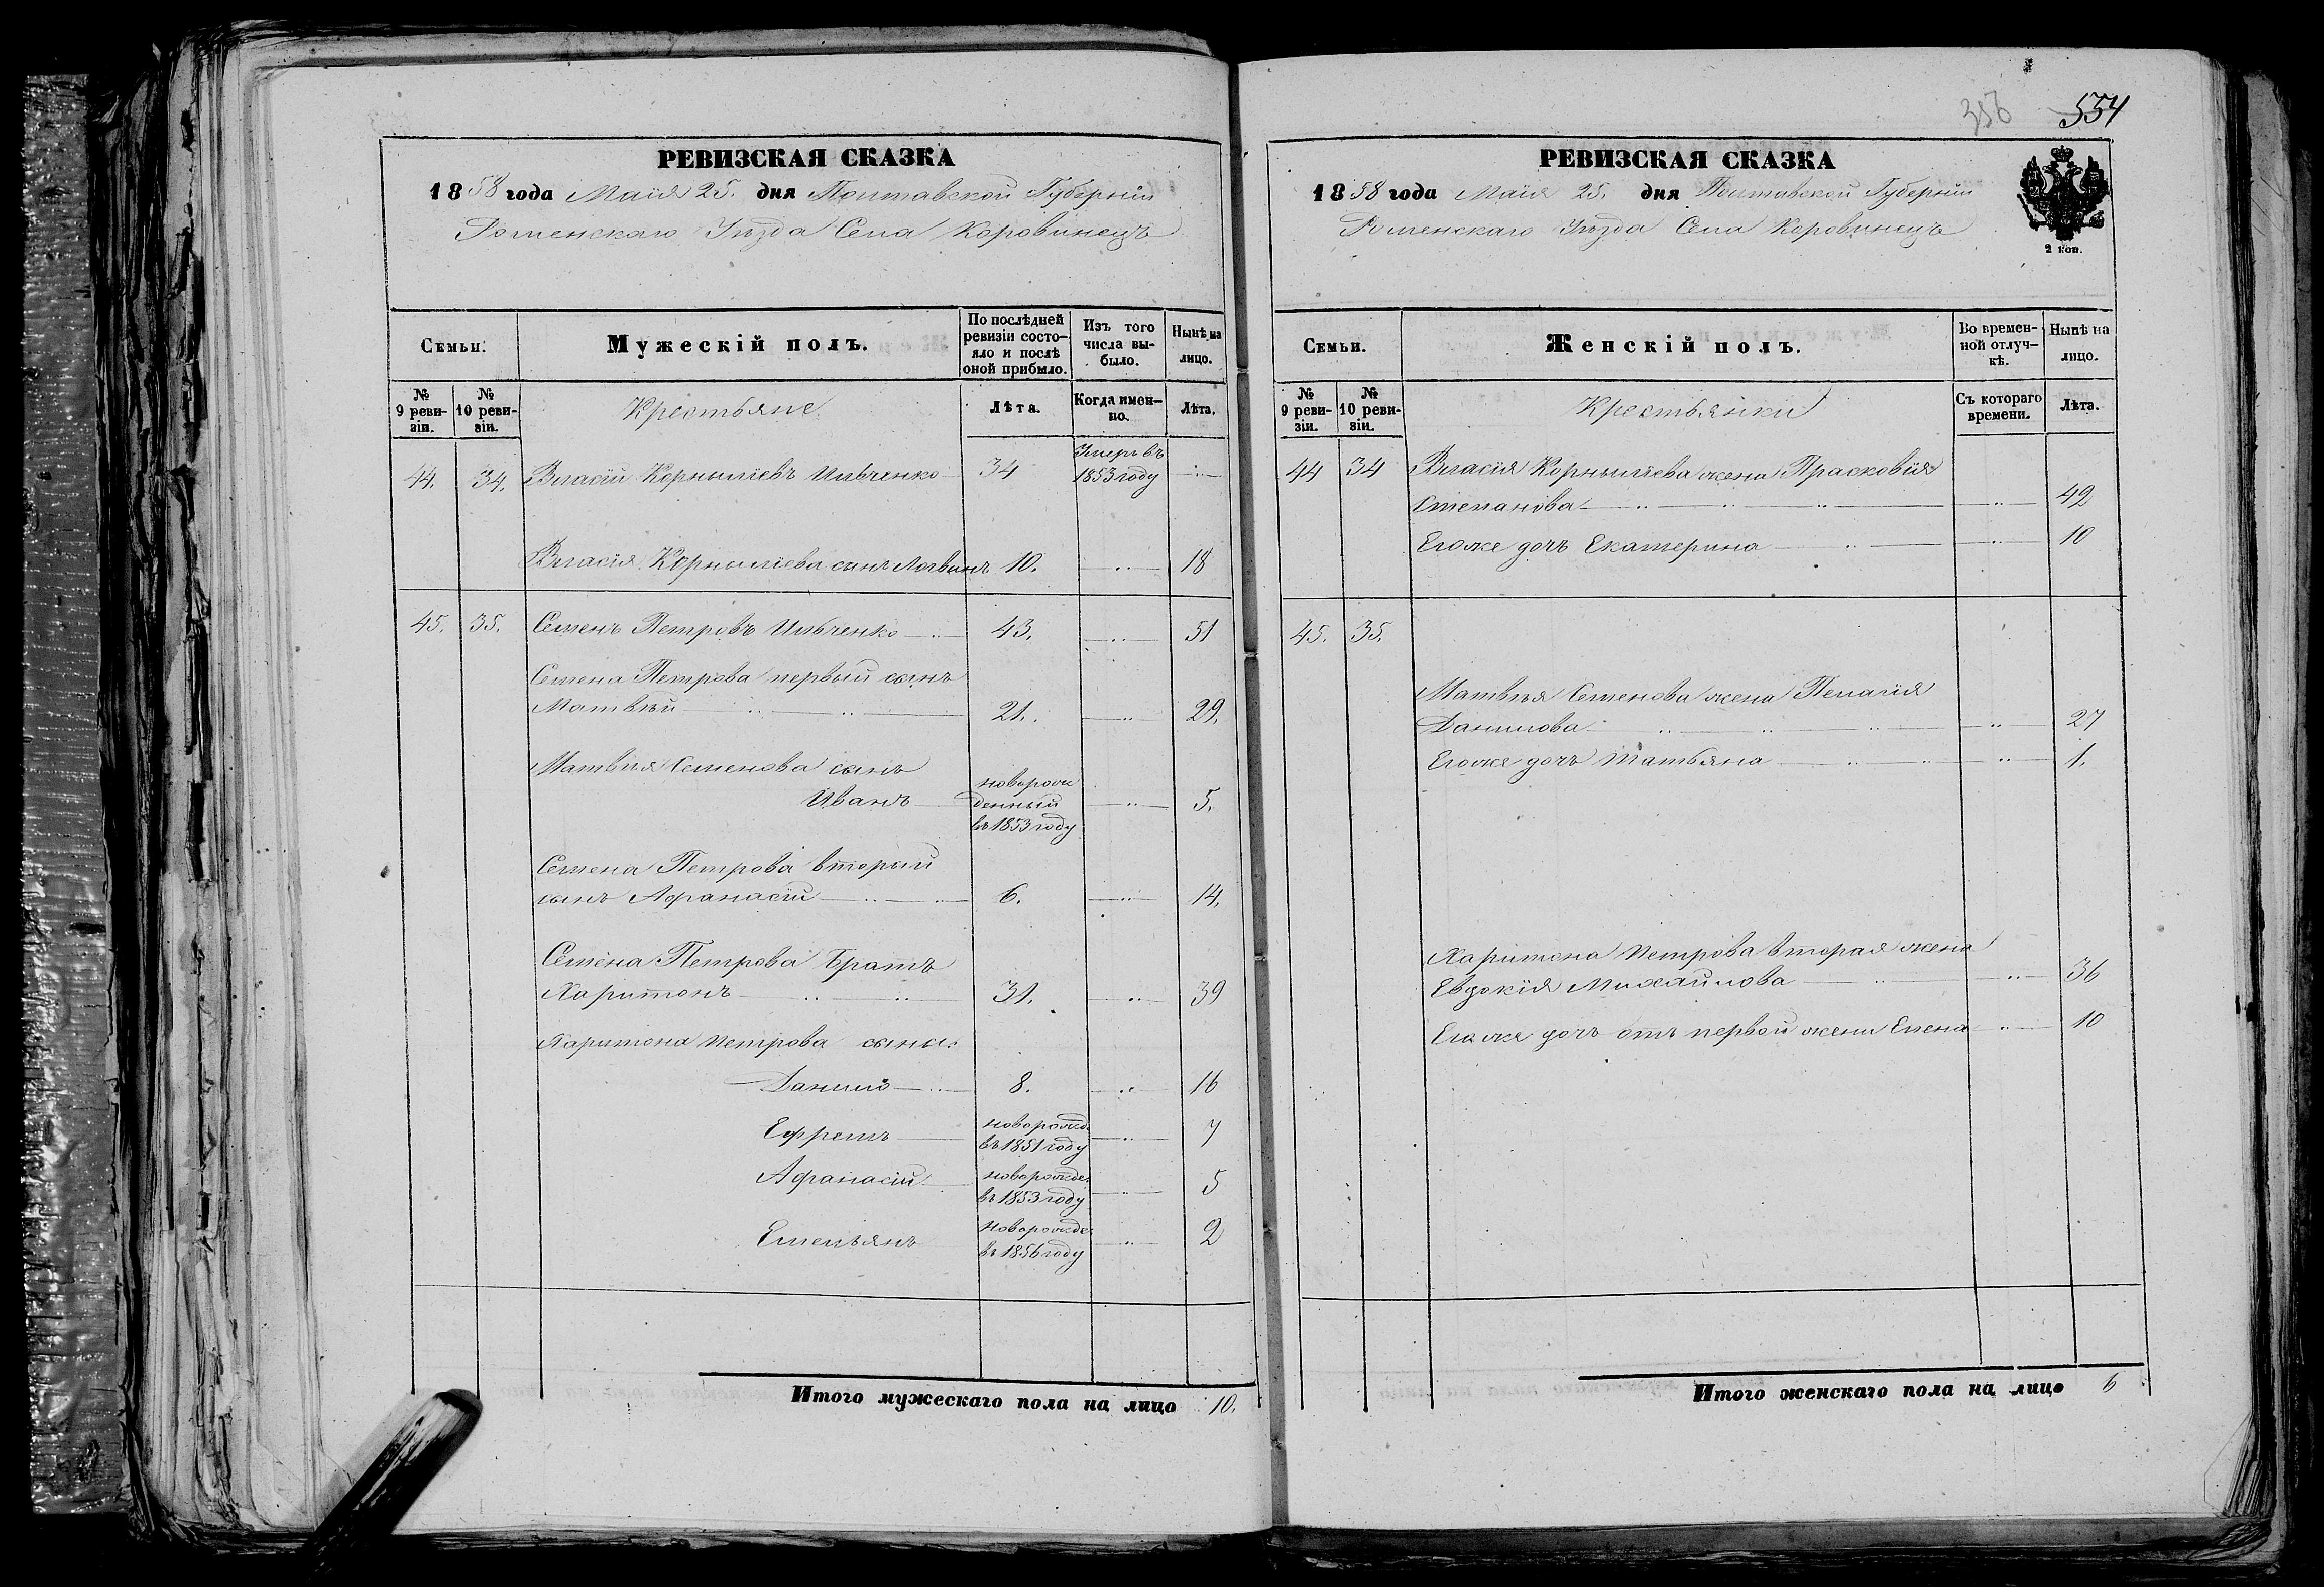 РЕВИЗСКАЯ СКАЗКА
1858 года Маія 25. дня Полтавской Губерніи
Роменскаго Уѣзда Села Коровинецъ
Семьи.
Мужескій полъ.
По послѣдней ревизіи состояло и послѣ оной прибыло.
Изъ того числа выбыло.
Нынѣ на лицо.
№ 9 ревизіи.
№ 10 ревизіи.
Крестьяне.
Лѣта.
Когда именно.
Лѣта.
44. 34. Власій Корныліевъ Ильченко 34 Умеръ въ 1853 году
Власія Корныліева сынъ Логвинъ 10. 18
45. 35. Семенъ Петровъ Ильченко 43. 51
Семена Петрова первый сынъ
Матвѣй 21. 29.
Матвѣя Семенова сынъ
Иванъ новорожденный въ 1853 году 5.
Семена Петрова вторый
сынъ Афанасій 6. 14.
Семена Петрова Братъ
Харитонъ 31. 39
Харитона Петрова сыны:
Данило 8. 16
Ефремъ новорожд. въ 1851 году 7
Афанасій новорожде. въ 1853 году 5
Емельянъ новорожде. въ 1856 году 2
Итого мужескаго пола на лицо 10.
356 554
РЕВИЗСКАЯ СКАЗКА
1858 года Маія 25. дня Полтавской Губерніи
Роменскаго Уѣзда Села Коровинецъ
2 коп.
Семьи.
Женскій полъ.
Во временной отлучкѣ.
Нынѣ на лицо.
№ 9 ревизіи.
№ 10 ревизіи.
Крестьянки
Съ котораго времени.
Лѣта.
44 34 Власія Корныліева жена Прасковія
Степанова 42
Егоже дочь Екатерина 10
45. 35.
Матвѣя Семенова жена Пелагія
Данилова 27
Егоже дочь Татьяна 1.
Харитона Петрова вторая жена
Евдокія Михайлова 36
Егоже дочь отъ первой жены Елена 10
Итого женскаго пола на лицо 6